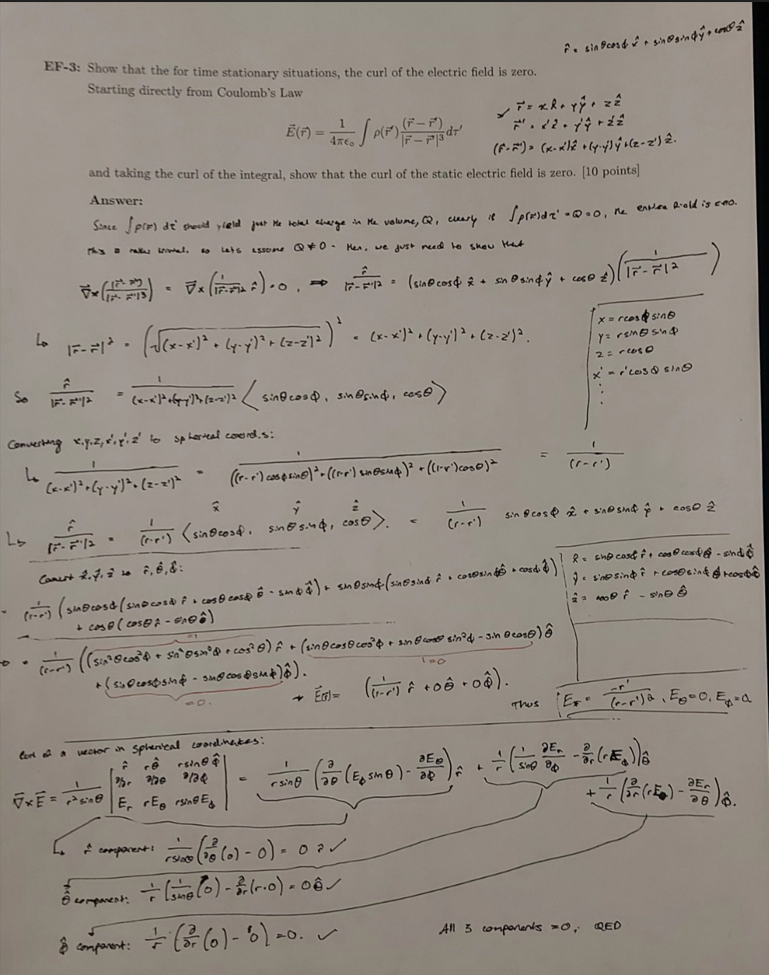 r̂ = sinθcosϕ x̂ + sinθsinϕ ŷ + cosθ ẑ
EF-3: Show that the for time stationary situations, the curl of the electric field is zero.
Starting directly from Coulomb's Law
E⃗(r⃗) = 1/4πϵ₀ ∫ ρ(r⃗') (r⃗ − r⃗')/|r⃗ − r⃗'|³ dτ'
r⃗ = x x̂ + yŷ + zẑ
r⃗' = x'x̂ + y'ŷ + z'ẑ
(r⃗-r⃗') = (x-x')x̂ + (y-y')ŷ + (z-z')ẑ.
and taking the curl of the integral, show that the curl of the static electric field is zero. [10 points]
Answer:
Since ∫ρ(r') dτ' should yield just the total charge in the volume, Q, clearly if ∫ρ(r')dτ' = Q = 0, the entire field is zero.
This is rather trivial, so lets assume Q ≠ 0 - then, we just need to show that
∇⃗×((r⃗-r⃗')/|r⃗-r⃗'|³) = ∇⃗×(1/|r⃗-r⃗'|² r̂) = 0, ⇒ r̂/|r⃗-r⃗'|² = (sinθcosϕ x̂ + sinθsinϕ ŷ + cosθ ẑ)(1/|r⃗-r⃗'|²)
↳ |r⃗-r⃗'|² = (√((x-x')² + (y-y')² + (z-z')²))² = (x-x')² + (y-y')² + (z-z')².
x = rcosϕsinθ
y = rsinθsinϕ
z = rcosθ
x' = r'cosϕ sinθ
⋮
So r̂/|r⃗-r⃗'|² = 1/((x-x')²+(y-y')²+(z-z')²) ⟨sinθcosϕ, sinθsinϕ, cosθ⟩
Converting x,y,z,x',y',z' to spherical coords:
↳ 1/((x-x')²+(y-y')²+(z-z')²) = 1/(((r-r')cosϕsinθ)²+((r-r')sinθsinϕ)²+((r-r')cosθ)²) = 1/(r-r')
x̂ ŷ ẑ
↳ r̂/|r⃗-r⃗'|² = 1/(r-r') ⟨sinθcosϕ, sinθsinϕ, cosθ⟩. = 1/(r-r') sinθcosϕ x̂ + sinθsinϕ ŷ + cosθ ẑ
Convert x̂,ŷ,ẑ to r̂,θ̂,ϕ̂:
x̂ = sinθcosϕ r̂ + cosθcosϕ θ̂ - sinϕ ϕ̂
ŷ = sinθsinϕ r̂ + cosθsinϕ θ̂ + cosϕ ϕ̂
ẑ = cosθ r̂ - sinθ θ̂
= 1/(r-r') (sinθcosϕ(sinθcosϕ r̂ + cosθcosϕ θ̂ - sinϕ ϕ̂) + sinθsinϕ(sinθsinϕ r̂ + cosθsinϕ θ̂ + cosϕ ϕ̂)
+ cosθ(cosθ r̂ - sinθ θ̂)
=1
= 1/(r-r') ((sin²θcos²ϕ + sin²θsin²ϕ + cos²θ) r̂ + (sinθcosθcos²ϕ + sinθcosθ sin²ϕ - sinθcosθ)θ̂
=0
+ (sinθcosϕsinϕ - sinθcosϕsinϕ)ϕ̂).
=0.
→ E⃗(r) = (1/(r-r') r̂ + 0θ̂ + 0ϕ̂).
Thus E_r = -r'/(r-r')², E_θ = 0, E_ϕ = 0.
Curl of a vector in spherical coordinates:
∇⃗×E⃗ = 1/r²sinθ | r̂ rθ̂ rsinθϕ̂ ; ∂/∂r ∂/∂θ ∂/∂ϕ ; E_r rE_θ rsinθE_ϕ | = 1/rsinθ (∂/∂θ(E_ϕ sinθ) - ∂E_θ/∂ϕ) r̂ + 1/r(1/sinθ ∂E_r/∂ϕ - ∂/∂r(rE_ϕ))θ̂
+ 1/r(∂/∂r(rE_θ) - ∂E_r/∂θ)ϕ̂.
↳ r̂ component: 1/rsinθ(∂/∂θ(0) - 0) = 0 r̂ ✓
θ̂ component: 1/r(1/sinθ(0) - ∂/∂r(r·0) = 0θ̂ ✓
ϕ̂ component: 1/r(∂/∂r(0) - 0) = 0. ✓
All 3 components = 0, QED